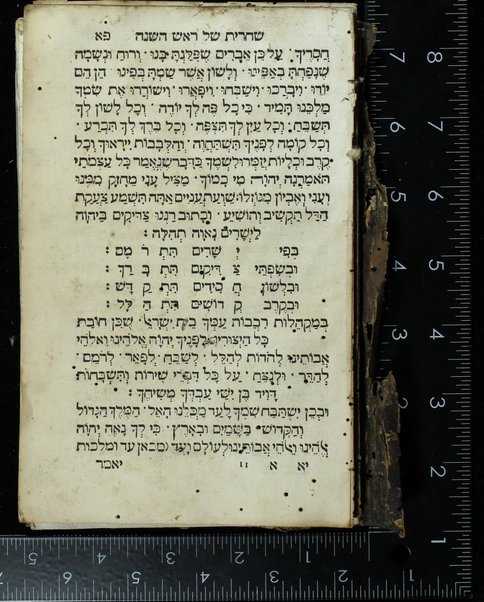 שחרית של ראש השנה פא
חֲסָדֶיךָ׃ עַל כֵּן אֵבָרִים שֶׁפִּלַּגְתָּ בָּנוּ וְרוּחַ וּנְשָׁמָה
שֶׁנָּפַחְתָּ בְאַפֵּינוּ וְלָשׁוֹן אֲשֶׁר שַׂמְתָּ בְּפִינוּ הֵן הֵם
יוֹדוּ וִיבָרְכוּ וִישַׁבְּחוּ וִיפָאֲרוּ וִישׁוֹרְרוּ אֶת שִׁמְךָ
מַלְכֵּנוּ תָּמִיד כִּי כָל פֶּה לְךָ יוֹדֶה וְכָל לָשׁוֹן לְךָ
תְשַׁבֵּחַ וְכָל עַיִן לְךָ תְצַפֶּה וְכָל בֶּרֶךְ לְךָ תִכְרַע
וְכָל קוֹמָה לְפָנֶיךָ תִּשְׁתַּחֲוֶה וְהַלְּבָבוֹת יִירָאוּךָ וְכָל
קֶרֶב וּכְלָיוֹת יְזַמְּרוּ לִשְׁמֶךָ כַּדָּבָר שֶׁנֶּאֱמַר כָּל עַצְמֹתַי
תֹּאמַרְנָה יְהוָה מִי כָמוֹךָ מַצִּיל עָנִי מֵחָזָק מִמֶּנּוּ
וְעָנִי וְאֶבְיוֹן מִגּוֹזְלוֹ שַׁוְעַת עֲנִיִּים אַתָּה תִּשְׁמַע צַעֲקַת
הַדַּל תַּקְשִׁיב וְתוֹשִׁיעַ וְכָתוּב רַנְּנוּ צַדִּיקִים בַּיהוָה
לַיְשָׁרִים נָאוָה תְהִלָּה׃
בְּפִי יְ שָׁרִים תִּתְ רֹ מָם׃
וּבְשִׂפְתֵי צַ דִּיקִים תִּתְ בָּ רַךְ׃
וּבִלְשׁוֹן חֲ סִידִים תִּתְ קַ דָּשׁ׃
וּבְקֶרֶב קְ דוֹשִׁים תִּתְ הַ לָּל׃
בְּמַקְהֲלוֹת רִבְבוֹת עַמְּךָ בֵּית יִשְׂרָאֵל שֶׁכֵּן חוֹבַת
כָּל הַיְצוּרִים לְפָנֶיךָ יְהוָה אֱלֹהֵינוּ וֵאלֹהֵי
אֲבוֹתֵינוּ לְהוֹדוֹת לְהַלֵּל לְשַׁבֵּחַ לְפָאֵר לְרֹמֵם
לְהַדֵּר וּלְנַצֵּחַ עַל כָּל דִּבְרֵי שִׁירוֹת וְתִשְׁבָּחוֹת
דָּוִיד בֶּן יִשַׁי עַבְדְּךָ מְשִׁיחֶךָ׃
וּבְכֵן יִשְׁתַּבַּח שִׁמְךָ לָעַד מַלְכֵּנוּ הָאֵל הַמֶּלֶךְ הַגָּדוֹל
וְהַקָּדוֹשׁ בַּשָּׁמַיִם וּבָאָרֶץ כִּי לְךָ נָאֶה יְהוָה
אֱלֹהֵינוּ וֵאלֹהֵי אֲבוֹתֵינוּ לְעוֹלָם וָעֶד (מכאן עד ומלכות
יא א 11 יאמר
1
2
3
4
5
6
7
8
5
4
3
2
1
7
6
5
4
3
2
1